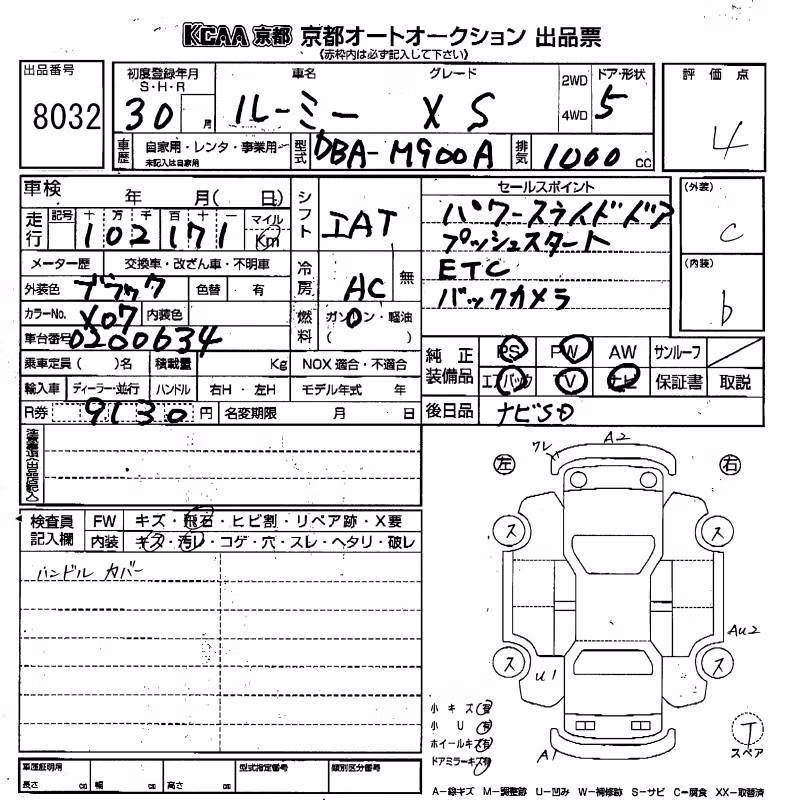 KCAA 京都 京都オートオークション 出品票
《赤枠内は必ず記入して下さい》
出品番号 8032
初度登録年月 S・H・R 30 月
車名 ルーミー
グレード XS
2WD 4WD
ドア・形状 5
評価点 4
車歴 自家用・レンタ・事業用 未記入は自家用
型式 DBA-M900A
排気 1000 CC
車検 年 月( 日)
シフト IAT
セールスポイント
パワースライドドア
プッシュスタート
ETC
バックカメラ
(外装) C
(内装) b
走行 記号 十 万 千 百 十 一 マイル Km
102171
メーター歴 交換車・改ざん車・不明車
冷房 AC 無
外装色 ブラック 色替 有
カラーNo. X07 内装色
燃料 ガソリン・軽油 ( )
車台番号 0200634
乗車定員 ( )名 積載量 Kg NOX適合・不適合
輸入車 ディーラー・並行 ハンドル 右H・左H モデル年式 年
R券 9130 円 名変期限 月 日
純正装備品 PS PW AW サンルーフ
エアバック TV ナビ 保証書 取説
後日品 ナビSD
検査員記入欄 FW キズ・飛石・ヒビ割・リペア跡・X要
内装 キズ・汚レ・コゲ・穴・スレ・ヘタリ・破レ
ハンドル カバー
左 右
ワレ A2
ス ス
ス ス
U1 AU2
A1
小キズ 有
小U 有
ホイールキズ 有
ドアミラーキズ 有
T スペア
車庫証明用 長さ cm 幅 cm 高さ cm
型式指定番号 類別区分番号
A-線キズ M-調整跡 U-凹み W-補修跡 S-サビ C-腐食 XX-取替済